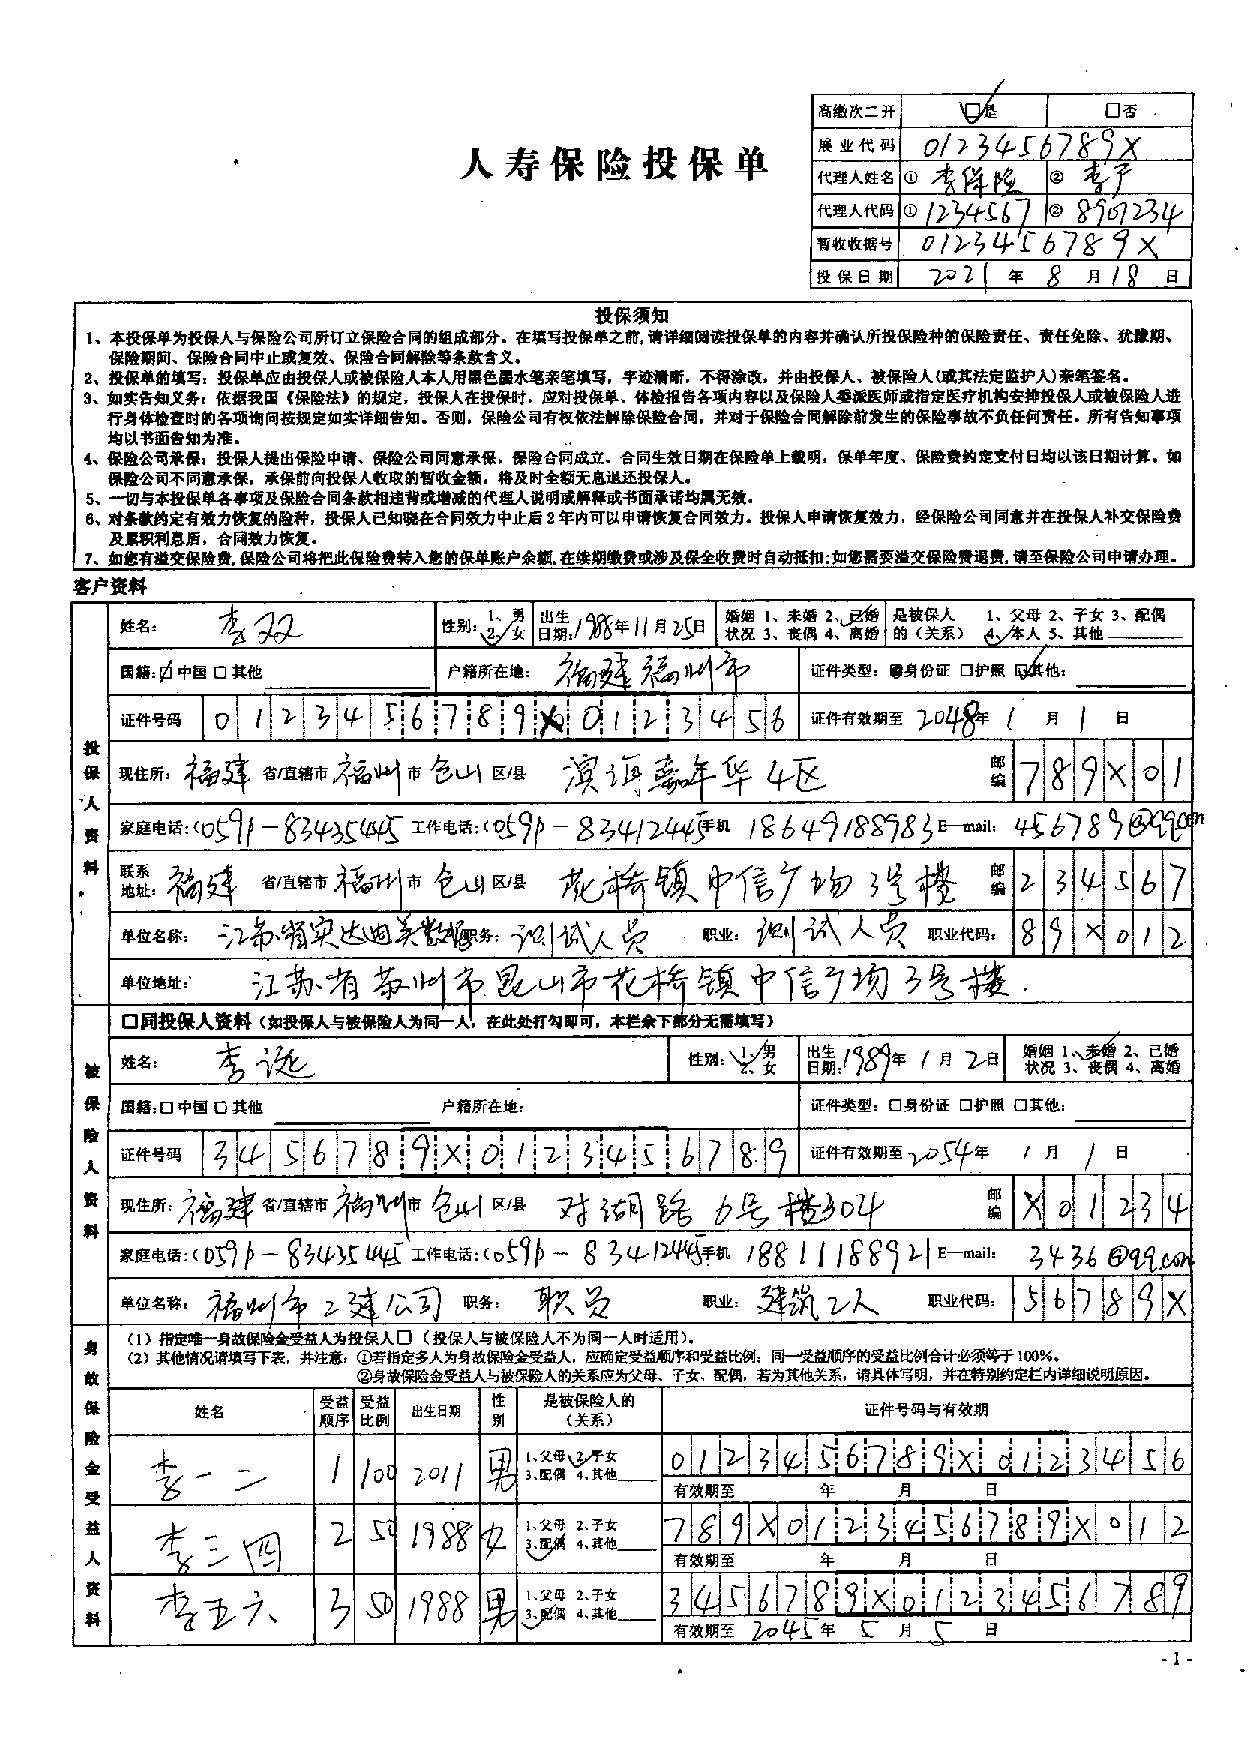 高缴次二开 □是 □否
展业代码 0123456789X
人寿保险投保单
代理人姓名 ① 李保险 ② 李产
代理人代码 ① 1234567 ② 8901234
暂收收据号 0123456789X
投保日期 2021 年 8 月 18 日
投保须知
1、本投保单为投保人与保险公司所订立保险合同的组成部分。在填写投保单之前,请详细阅读投保单的内容并确认所投保险种的保险责任、责任免除、犹豫期、
保险期间、保险合同中止或复效、保险合同解除等条款含义。
2、投保单的填写：投保单应由投保人或被保险人本人用黑色墨水笔亲笔填写，字迹清晰，不得涂改，并由投保人、被保险人(或其法定监护人)亲笔签名。
3、如实告知义务：依据我国《保险法》的规定，投保人在投保时，应对投保单、体检报告各项内容以及保险人委派医师或指定医疗机构安排投保人或被保险人进
行身体检查时的各项询问按规定如实详细告知。否则，保险公司有权依法解除保险合同，并对于保险合同解除前发生的保险事故不负任何责任。所有告知事项
均以书面告知为准。
4、保险公司承保：投保人提出保险申请、保险公司同意承保，保险合同成立。合同生效日期在保险单上载明，保单年度、保险费约定支付日均以该日期计算。如
保险公司不同意承保，承保前向投保人收取的暂收金额，将及时全额无息退还投保人。
5、一切与本投保单各事项及保险合同条款相违背或增减的代理人说明或解释或书面承诺均属无效。
6、对条款约定有效力恢复的险种，投保人已知晓在合同效力中止后2年内可以申请恢复合同效力。投保人申请恢复效力，经保险公司同意并在投保人补交保险费
及累积利息后，合同效力恢复。
7、如您有溢交保险费,保险公司将把此保险费转入您的保单账户余额,在续期缴费或涉及保全收费时自动抵扣;如您需要溢交保险费退费,请至保险公司申请办理。
客户资料
投保人资料
姓名： 李双 性别：1、男 2、女 出生日期：1988年11月25日 婚姻状况 1、未婚 2、已婚 3、丧偶 4、离婚 是被保人的（关系） 1、父母 2、子女 3、配偶 4、本人 5、其他
国籍：□中国 □其他 户籍所在地： 福建福州市 证件类型：□身份证 □护照 □其他：
证件号码 0123456789X0123456 证件有效期至 2048年 1 月 1 日
现住所： 福建 省/直辖市 福州 市 仓山 区/县 滨海嘉年华4区 邮编 789X01
家庭电话：(0591)-83435445 工作电话：(0591)-83412445 手机 18649188983 E—mail: 456789@qq.com
联系地址： 福建 省/直辖市 福州 市 仓山 区/县 花桥镇中信广场3号楼 邮编 234567
单位名称： 江苏省实达迪美数据 职务： 测试人员 职业： 测试人员 职业代码： 89X012
单位地址： 江苏省苏州市昆山市花桥镇中信广场3号楼.
被保险人资料
□同投保人资料（如投保人与被保险人为同一人，在此处打勾即可，本栏余下部分无需填写）
姓名： 李诞 性别：1、男 2、女 出生日期：1989年 1 月 2 日 婚姻状况 1、未婚 2、已婚 3、丧偶 4、离婚
国籍：□中国 □其他 户籍所在地： 证件类型：□身份证 □护照 □其他：
证件号码 3456789X0123456789 证件有效期至 2054年 1 月 1 日
现住所： 福建 省/直辖市 福州 市 仓山 区/县 对湖路 6号楼304 邮编 X01234
家庭电话：(0591)-83435445 工作电话：(0591)-83412445 手机 18811188921 E—mail: 3436@qq.com
单位名称： 福州市二建公司 职务： 职员 职业： 建筑工人 职业代码： 56789X
身故保险金受益人资料
（1）指定唯一身故保险金受益人为投保人□（投保人与被保险人不为同一人时适用）。
（2）其他情况请填写下表，并注意：①若指定多人为身故保险金受益人，应确定受益顺序和受益比例；同一受益顺序的受益比例合计必须等于100%。
②身故保险金受益人与被保险人的关系应为父母、子女、配偶，若为其他关系，请具体写明，并在特别约定栏内详细说明原因。
姓名 受益顺序 受益比例 出生日期 性别 是被保险人的（关系） 证件号码与有效期
李一二 1 100 2011 男 1、父母 2、子女 3、配偶 4、其他 0123456789X0123456
有效期至 年 月 日
李三四 2 50 1988 女 1、父母 2、子女 3、配偶 4、其他 789X0123456789X012
有效期至 年 月 日
李五六 3 50 1988 男 1、父母 2、子女 3、配偶 4、其他 3456789X0123456789
有效期至 2045 年 5 月 5 日
- 1 -